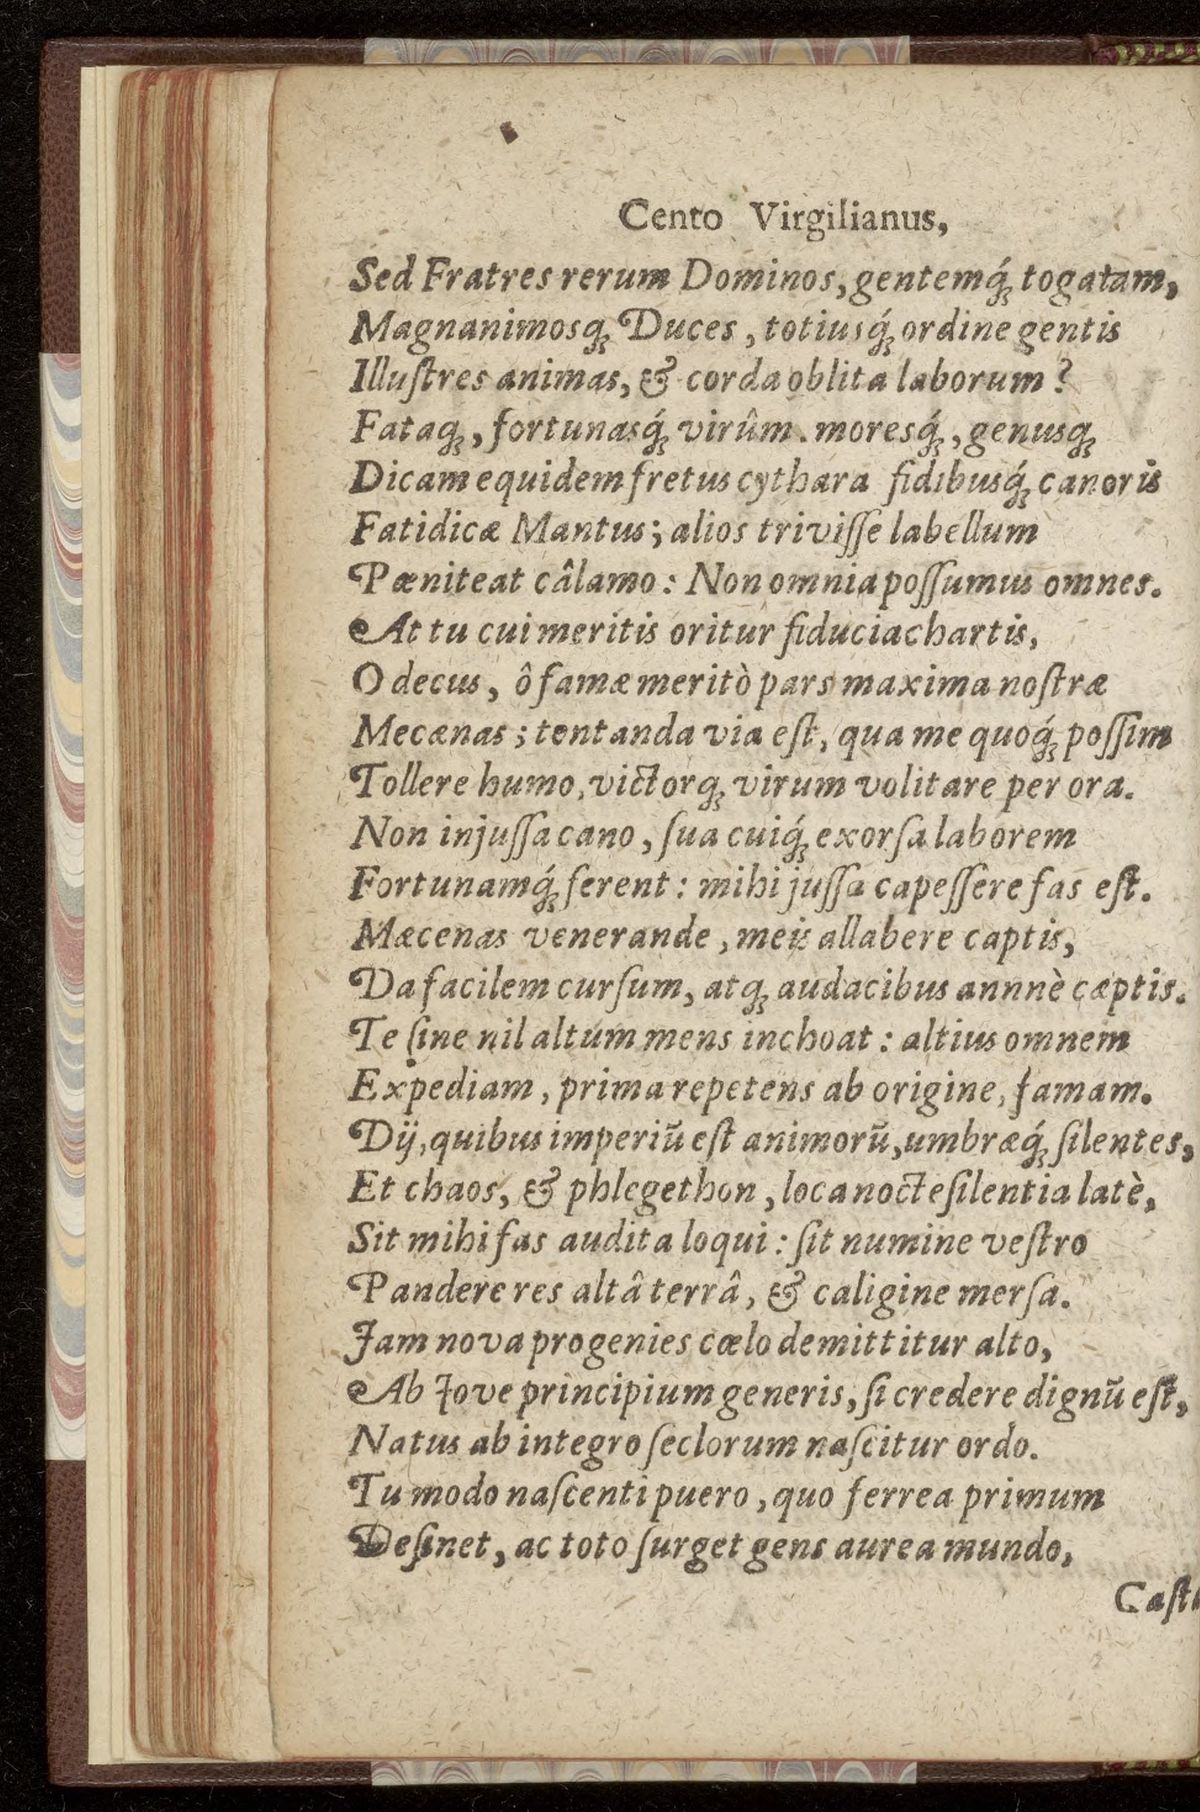 Cento Virgilianus,
Sed Fratres rerum Dominos, gentemq́ꝫ togatam,
Magnanimosqꝫ Duces, totiusq́ꝫ ordine gentis
Illuſtres animas, & corda oblita laborum?
Fataqꝫ, fortunasq́ꝫ virûm. moresq́ꝫ, genusqꝫ
Dicam equidem fretus cythara fidibusq́ꝫ canoris
Fatidicæ Mantus; alios triviſſe labellum
Pæniteat câlamo: Non omnia poſſumus omnes.
At tu cui meritis oritur fiducia chartis,
O decus, ô famæ meritò pars maxima noſtræ
Mecænas; tentanda via eſt, qua me quoq́ꝫ poſſim
Tollere humo, victorqꝫ virum volitare per ora.
Non injuſſa cano, ſua cuiq́ꝫ exorſa laborem
Fortunamq́ꝫ ferent: mihi juſſa capeſſere fas eſt.
Mæcenas venerande, meis allabere captis,
Da facilem curſum, atqꝫ audacibus annnè cæptis.
Te ſine nil altum mens inchoat: altius omnem
Expediam, prima repetens ab origine, famam.
Dij, quibus imperiū eſt animorū, umbræq́ꝫ ſilentes,
Et chaos, & phlegethon, loca nocte ſilentia latè,
Sit mihi fas audita loqui: ſit numine veſtro
Pandere res altâ terrâ, & caligine merſa.
Jam nova progenies cœlo demittitur alto,
Ab Jove principium generis, ſi credere dignū eſt,
Natus ab integro ſeclorum naſcitur ordo.
Tu modo naſcenti puero, quo ferrea primum
Deſinet, ac toto ſurget gens aurea mundo,
Caſt